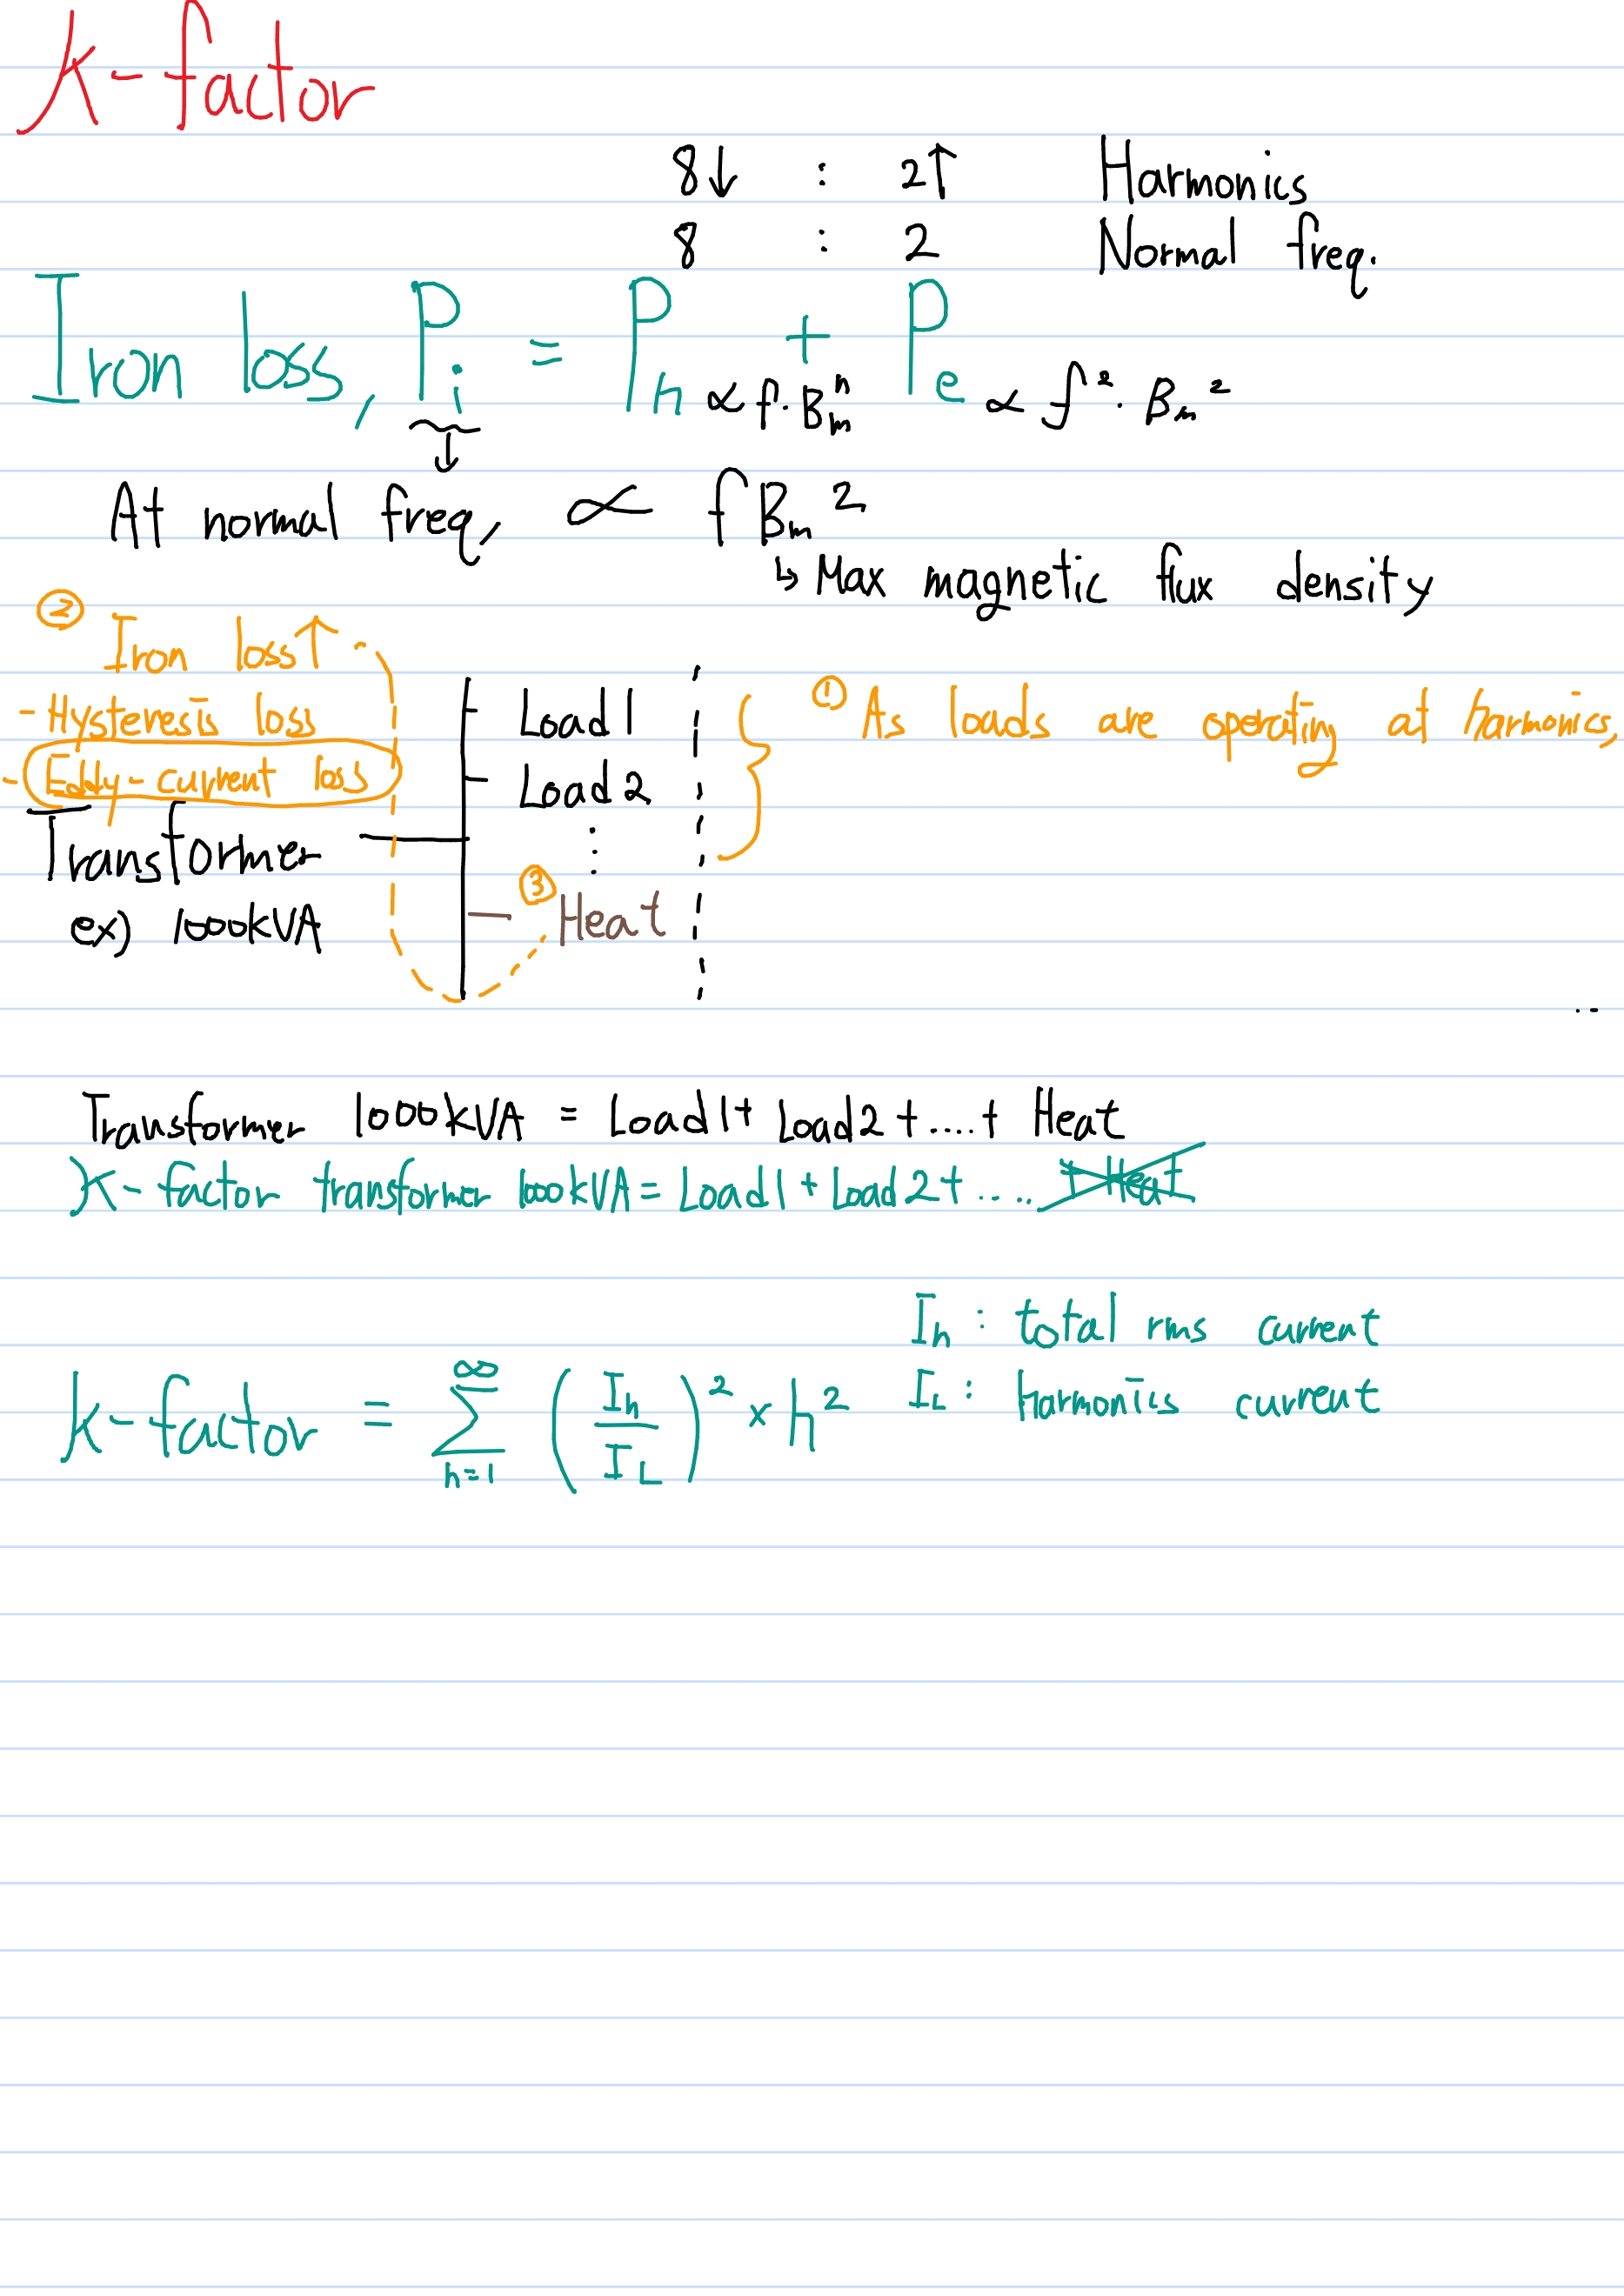 K-factor
8↓ : 2↑ Harmonics
8 : 2 Normal freq.
Iron loss, Pi = Ph ∝ f·Bmⁿ + Pe ∝ f²·Bm²
↓
At normal freq, ∝ f Bm²
↳ Max magnetic flux density
② Iron loss↑
- Hysteresis loss
- Eddy-current loss
Transformer
ex) 1000kVA
Load1
Load2
⋮
③ Heat
① As loads are operating at harmonics,
Transformer 1000kVA = Load1+ Load2+....+ Heat
K-factor transformer 1000kVA = Load1 + Load2+ .... + Heat
Ih : total rms current
IL : harmonics current
k-factor = ∞∑h=1 (Ih/IL)² × h²